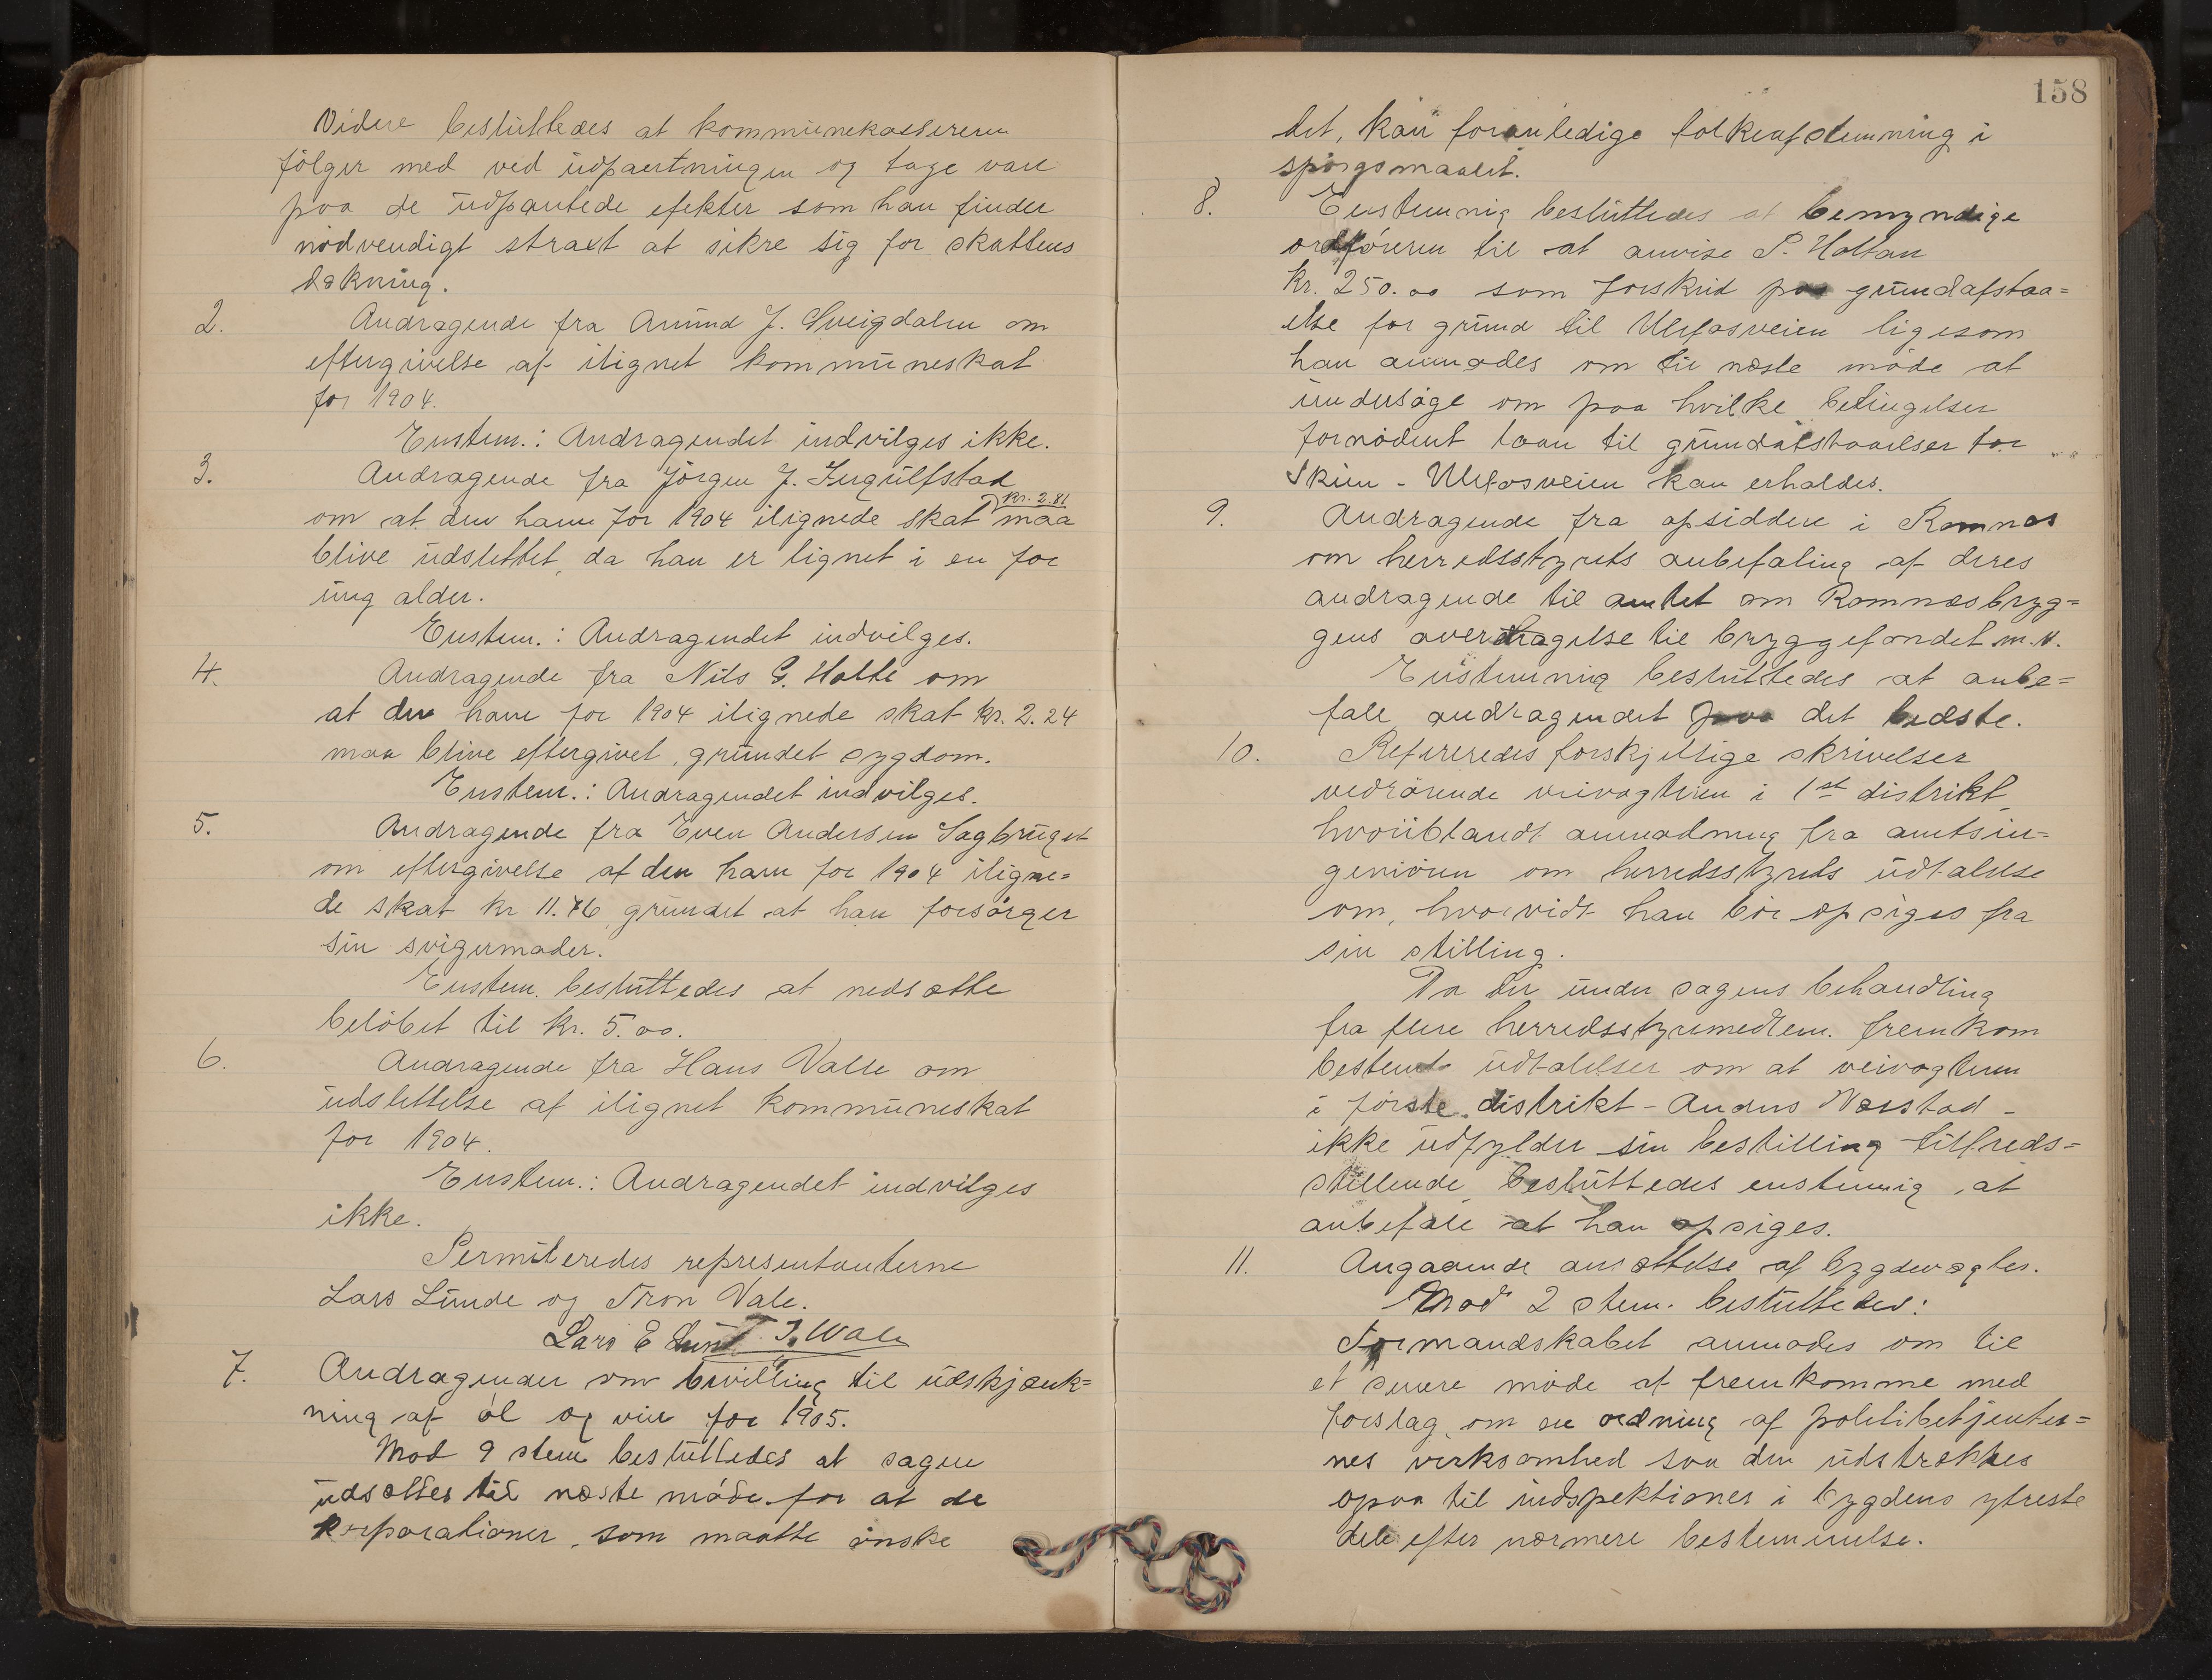 Videre besluttedes at kommunekassereren
følger med ved udpantningen og tage vare
paa de udpantede efekter som han finder
nødvendigt straxt at sikre sig for skattens
dækning.
2. Andragende fra Amund J. Sveigdalen om
eftergivelse af ilignet kommuneskat
for 1904.
Enstem.: Andragendet indvilges ikke.
3. Andragende fra Jørgen J. Ingulfstad
kr. 2.81
om at den ham for 1904 ilignede skat maa
blive udslettet, da han er lignet i en for
ung alder.
Enstem.: Andragendet indvilges.
4. Andragende fra Nils G. Holte om
at den ham for 1904 ilignede skat kr. 2.24
maa blive eftergivet, grundet sygdom.
Enstem.: Andragendet indvilges.
5. Andragende fra Even Andersen Sagbruget
om eftergivelse af den ham for 1904 iligne=
de skat kr 11.76 grundet at han forsørger
sin svigermoder.
Enstem. besluttedes at nedsætte
beløbet til kr. 5.00.
6. Andragende fra Hans Valle om
udslettelse af ilignet kommuneskat
for 1904.
Enstem.: Andragendet indvilges
ikke.
Permiteredes representanterne
Lars Lunde og Tron Vale.
Lars E Lund T. J. Wale
7. Andragender om bevilling til udskjænk=
ning af øl og vin for 1905.
Mod 9 stem besluttedes at sagen
udsættes til næste møde for at de
korporationer, som maatte ønske
158
det, kan foranledige folkeafstemning i
spørgsmaalet.
8. Enstemmig besluttedes at bemyndige
ordføreren til at anvise P. Holtan
Kr. 250.00 som forskud paa grundafstaa=
else for grund til Ulefosveien ligesom
han anmodes om til næste møde at
undersøge om paa hvilke betingelser
fornødent laan til grundafstaaelser for
Skien - Ulefosveien kan erholdes.
9. Andragende fra opsiddere i Romnæs
om herredsstyrets anbefaling af deres
andragende til amtet om Romnæsbryg=
gens overdragelse til bryggefondet m. v.
Enstemmig besluttedes at anbe=
fale andragendet paa det bedste.
10. Refereredes forskjellige skrivelser
vedrørende veivogteren i 1st distrikt,
hvoriblandt anmodning fra amtsin=
geniøren om herredsstyrets udtalelse
om, hvorvidt han bør opsiges fra
sin stilling.
Da der under sagens behandling
fra flere herredsstyremedlem. fremkom
bestemte udtalelser om at veivogteren
i første distrikt - Anders Næsstad -
ikke udfylder sin bestilling tilfreds=
stillende besluttedes enstemmig, at
anbefale at han opsiges.
11. Angaaende ansættelse af bygdevægter.
Mod 2 stem. besluttedes:
Formandskabet anmodes om til
et senere møde at fremkomme med
forslag om en ordning af politibetjenter=
nes virksomhed saa den udstrækkes
ogsaa til indspektioner i bygdens ytreste
dele efter nærmere bestemmelse.